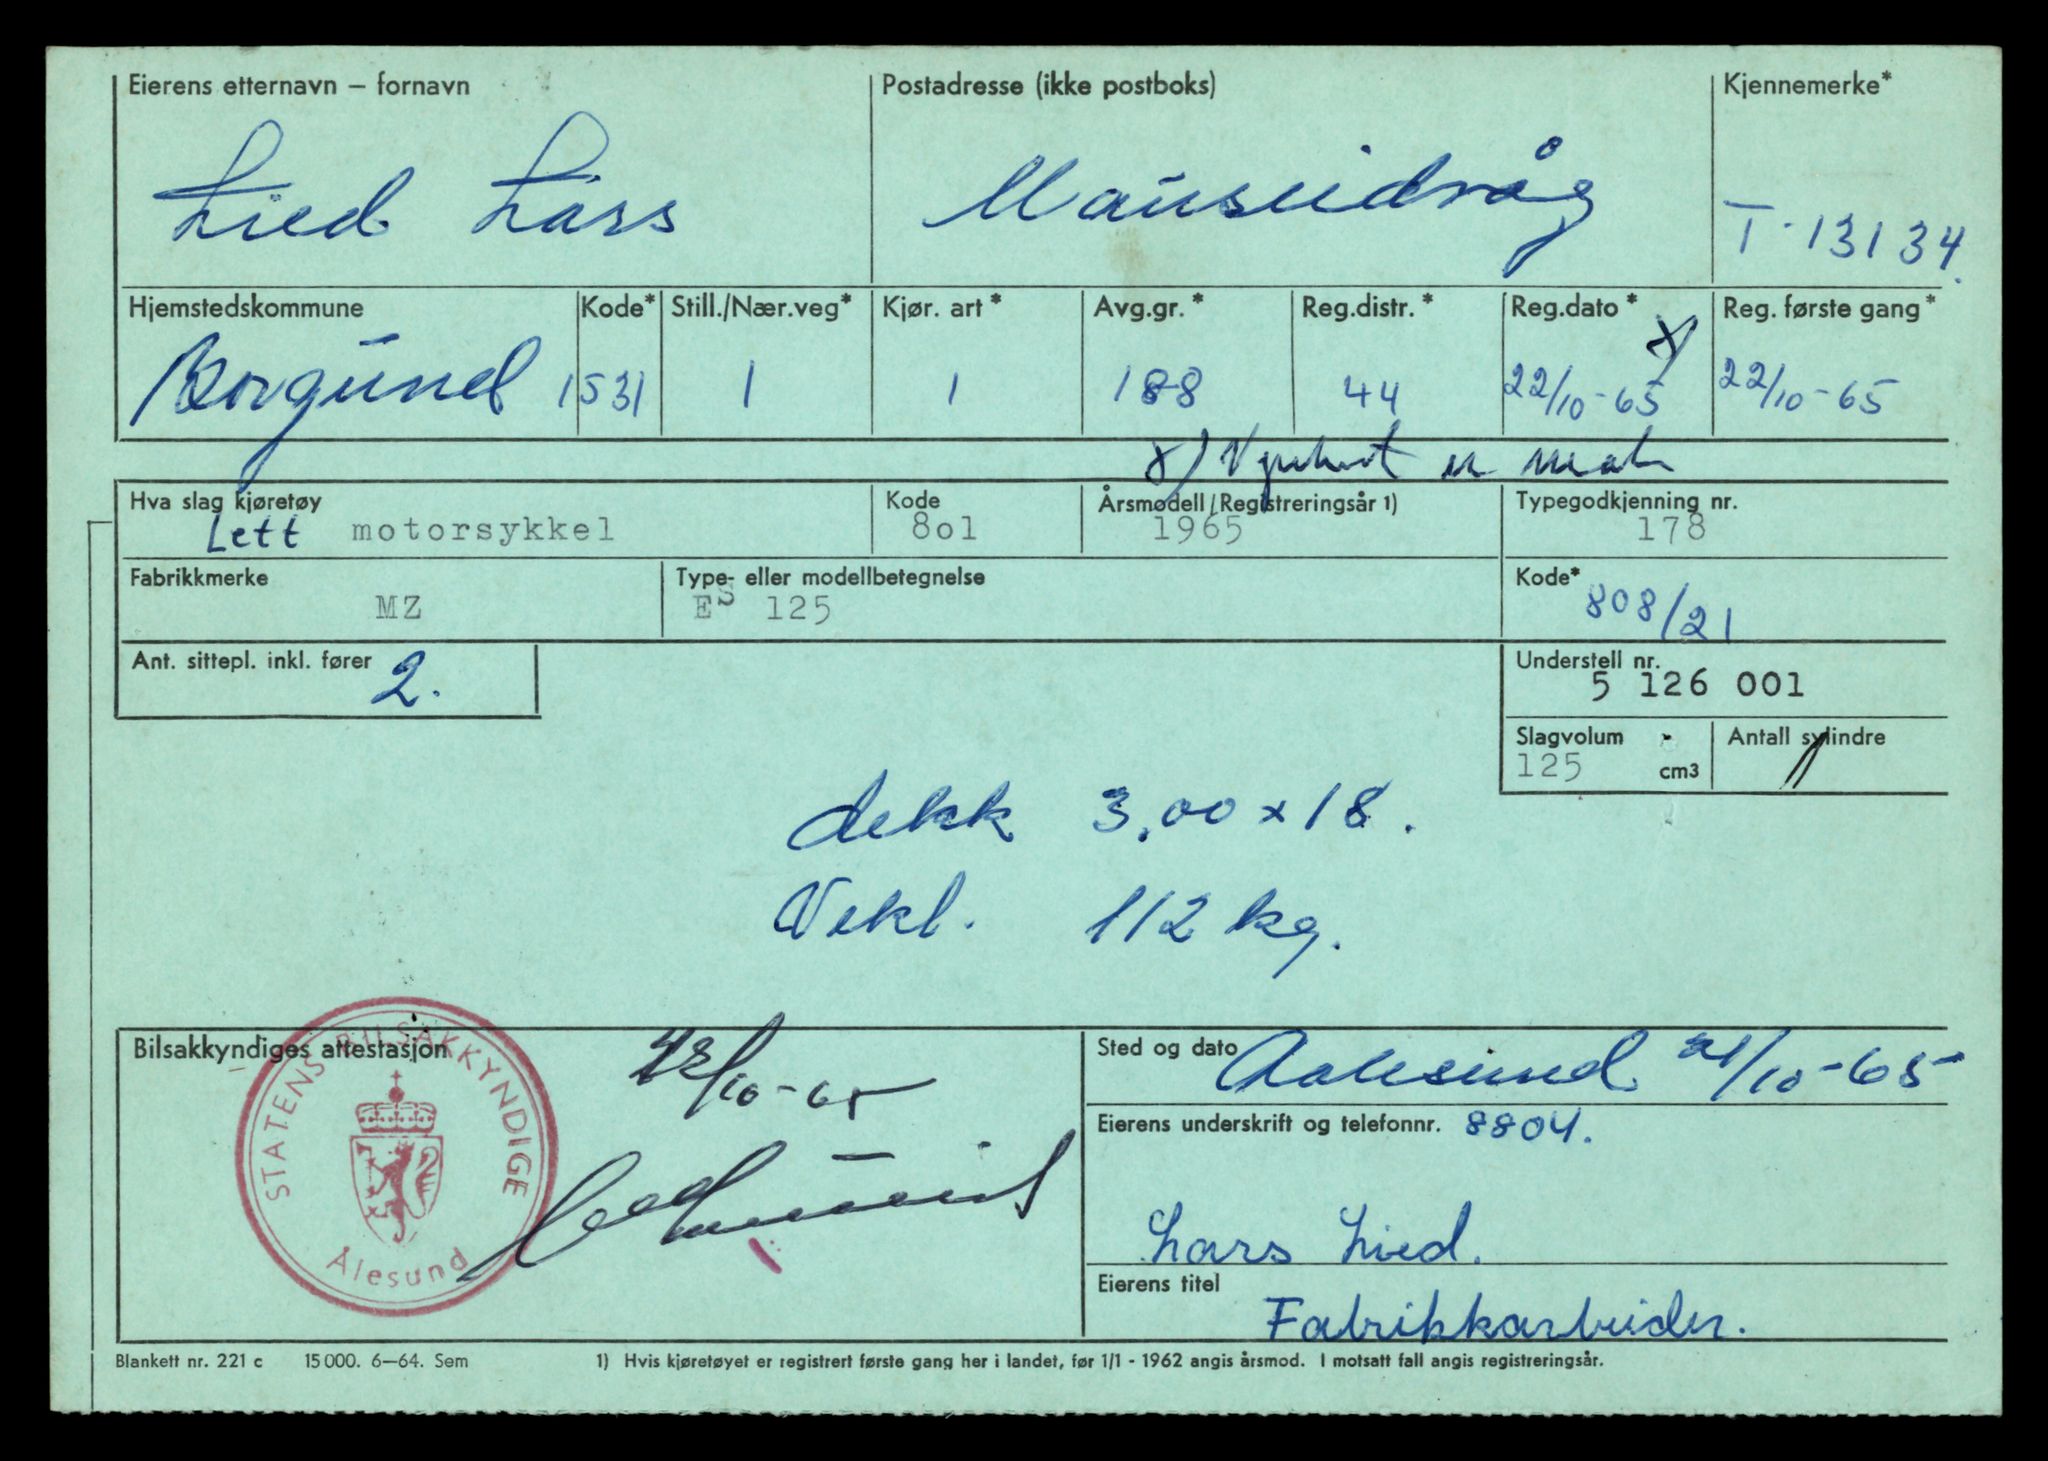 Eierens etternavn – fornavn Postadresse (ikke postboks) Kjennemerke*
Lied Lars Mauseidvåg T-13134.
Hjemstedskommune Kode* Still./Nær.veg* Kjør. art* Avg.gr.* Reg.distr.* Reg.dato* Reg. første gang*
x)
Borgund 1531 1 1 188 44 22/10-65 22/10-65
x)
Hva slag kjøretøy Kode Årsmodell/Registreringsår 1) Typegodkjenning nr.
Lett motorsykkel 8o1 1965 178
Fabrikkmerke Type- eller modellbetegnelse Kode*
MZ ES 125 808/21
Ant. sittepl. inkl. fører 2. Understell nr.
5 126 001
Slagvolum Antall sylindre
125 cm3 1
dekk 3,00 x 18.
Vekt. 112 kg.
Bilsakkyndiges attestasjon Sted og dato Aalesund 21/10-65
STATENS BILSAKKYNDIGE
Ålesund
Eierens underskrift og telefonnr. 8804.
Lars Lied.
Eierens titel
Fabrikkarbeider.
Blankett nr. 221 c 15 000. 6–64. Sem 1) Hvis kjøretøyet er registrert første gang her i landet, før 1/1 - 1962 angis årsmod. I motsatt fall angis registreringsår.